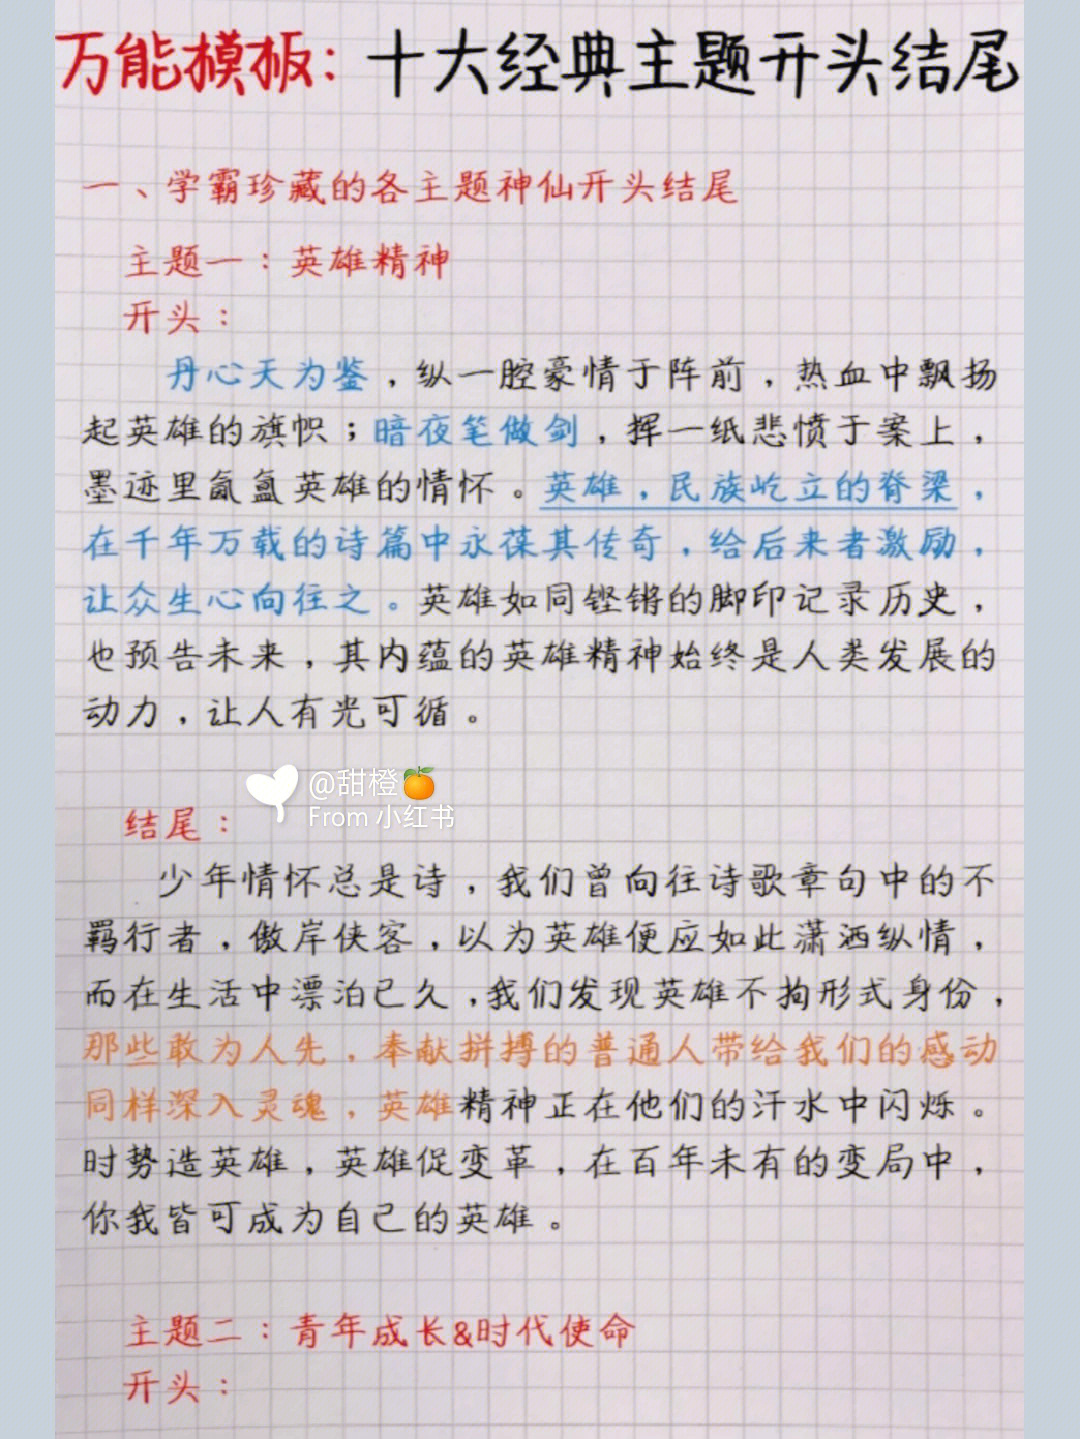 万能模板：十大经典主题开头结尾
一、学霸珍藏的各主题神仙开头结尾
主题一：英雄精神
开头：
丹心天为鉴，纵一腔豪情于阵前，热血中飘扬
起英雄的旗帜；暗夜笔做剑，挥一纸悲愤于案上，
墨迹里氤氲英雄的情怀。英雄，民族屹立的脊梁，
在千年万载的诗篇中永葆其传奇，给后来者激励，
让众生心向往之。英雄如同铿锵的脚印记录历史，
也预告未来，其内蕴的英雄精神始终是人类发展的
动力，让人有光可循。
@甜橙🍊
From 小红书
结尾：
少年情怀总是诗，我们曾向往诗歌章句中的不
羁行者，傲岸侠客，以为英雄便应如此潇洒纵情，
而在生活中漂泊已久，我们发现英雄不拘形式身份，
那些敢为人先，奉献拼搏的普通人带给我们的感动
同样深入灵魂，英雄精神正在他们的汗水中闪烁。
时势造英雄，英雄促变革，在百年未有的变局中，
你我皆可成为自己的英雄。
主题二：青年成长&时代使命
开头：